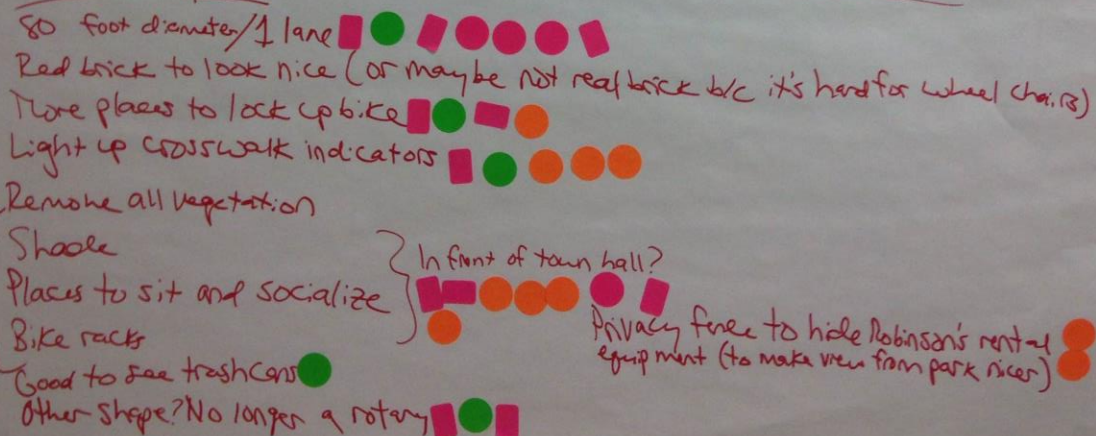 80 foot diameter/1 lane
Red brick to look nice (or maybe not real brick b/c it's hard for wheel chairs)
More places to lock up bike
Light up crosswalk indicators
Remove all vegetation
Shade
In front of town hall?
Places to sit and socialize
Bike racks
Privacy fence to hide Robinson's rental
equipment (to make view from park nicer)
Good to see trashcans
Other shape? No longer a rotary